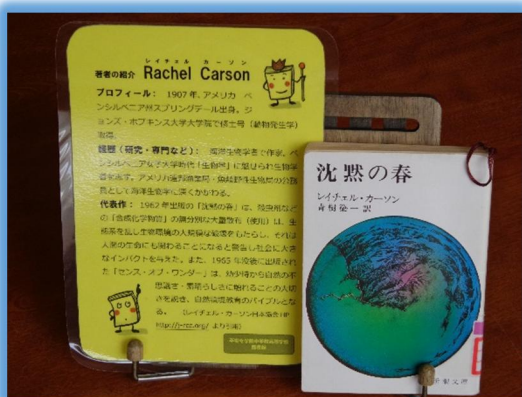 レイチェル カーソン
著者の紹介 Rachel Carson
プロフィール： 1907年、アメリカ ペ
ンシルベニア州スプリングデール出身。ジ
ョンズ・ホプキンス大学大学院で修士号（動物発生学）
取得。
職歴（研究・専門など）： 海洋生物学者で作家。ペ
ンシルベニア女子大学時代「生物学」に魅せられ生物学
者を志す。アメリカ連邦漁業局・魚類野生生物局の
長として海洋生物学に深くかかわる。
代表作： 1962年出版の「沈黙の春」は、殺虫剤など
の「合成化学物質」の無分別な大量散布（使用）は、生
態系を乱し生物環境の大規模な破壊をもたらし、それは
人間の生命にも関わることになると警告し社会に大き
なインパクトを与えた。また、1965年没後に出版され
た「センス・オブ・ワンダー」は、幼少時から自然の不
思議さ・素晴らしさに触れることの大切
さを説き、自然環境教育のバイブルとな
る。 （レイチェル・カーソン日本協会HP
より引用）
沈黙の春
レイチェル・カーソン
青樹簗一訳
新潮文庫